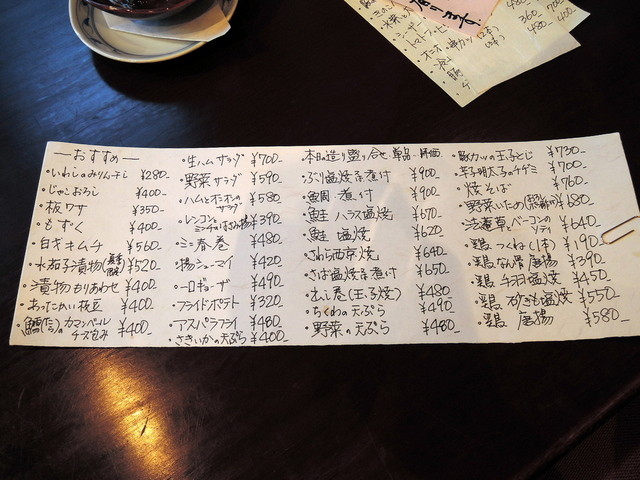 ―おすすめ―
・いわしのみりん干し ¥280-
・じゃこおろし ¥400-
・板ワサ ¥350-
・もずく ¥400-
・白菜キムチ ¥560-
・水茄子漬物 ¥520-
・漬物もりあわせ ¥400-
・あったかい枝豆 ¥400-
・鱈のカマンベールチーズ包み ¥400-
・生ハムサラダ ¥700-
・野菜サラダ ¥590-
・ハムとオニオンのサラダ ¥580-
・レンコンとミンチのはさみ揚 ¥390
・ミニ春巻 ¥480
・揚シューマイ ¥420
・一口ギョーザ ¥490
・フライドポテト ¥320
・アスパラフライ ¥480-
・さきいかの天ぷら ¥400-
・本日の造り盛り合せ・単品
・ぶり塩焼き煮付 ¥900-
・鯛煮付 ¥900-
・鮭ハラス塩焼 ¥670-
・鮭塩焼 ¥620
・さわら西京焼 ¥640-
・さば塩焼き煮付 ¥650-
・だし巻(玉子焼) ¥480
・ちくわの天ぷら ¥490-
・野菜の天ぷら ¥480-
・豚カツの玉子とじ ¥730-
・辛子明太子のチヂミ ¥700-
・焼そば ¥760-
・野菜いため ¥680-
・法蓮草とベーコンのソティ ¥640
・鶏つくね(1本) ¥190
・鶏なん骨唐揚 ¥390
・鶏手羽塩焼 ¥450
・鶏せせり塩焼 ¥550
・鶏唐揚 ¥580-